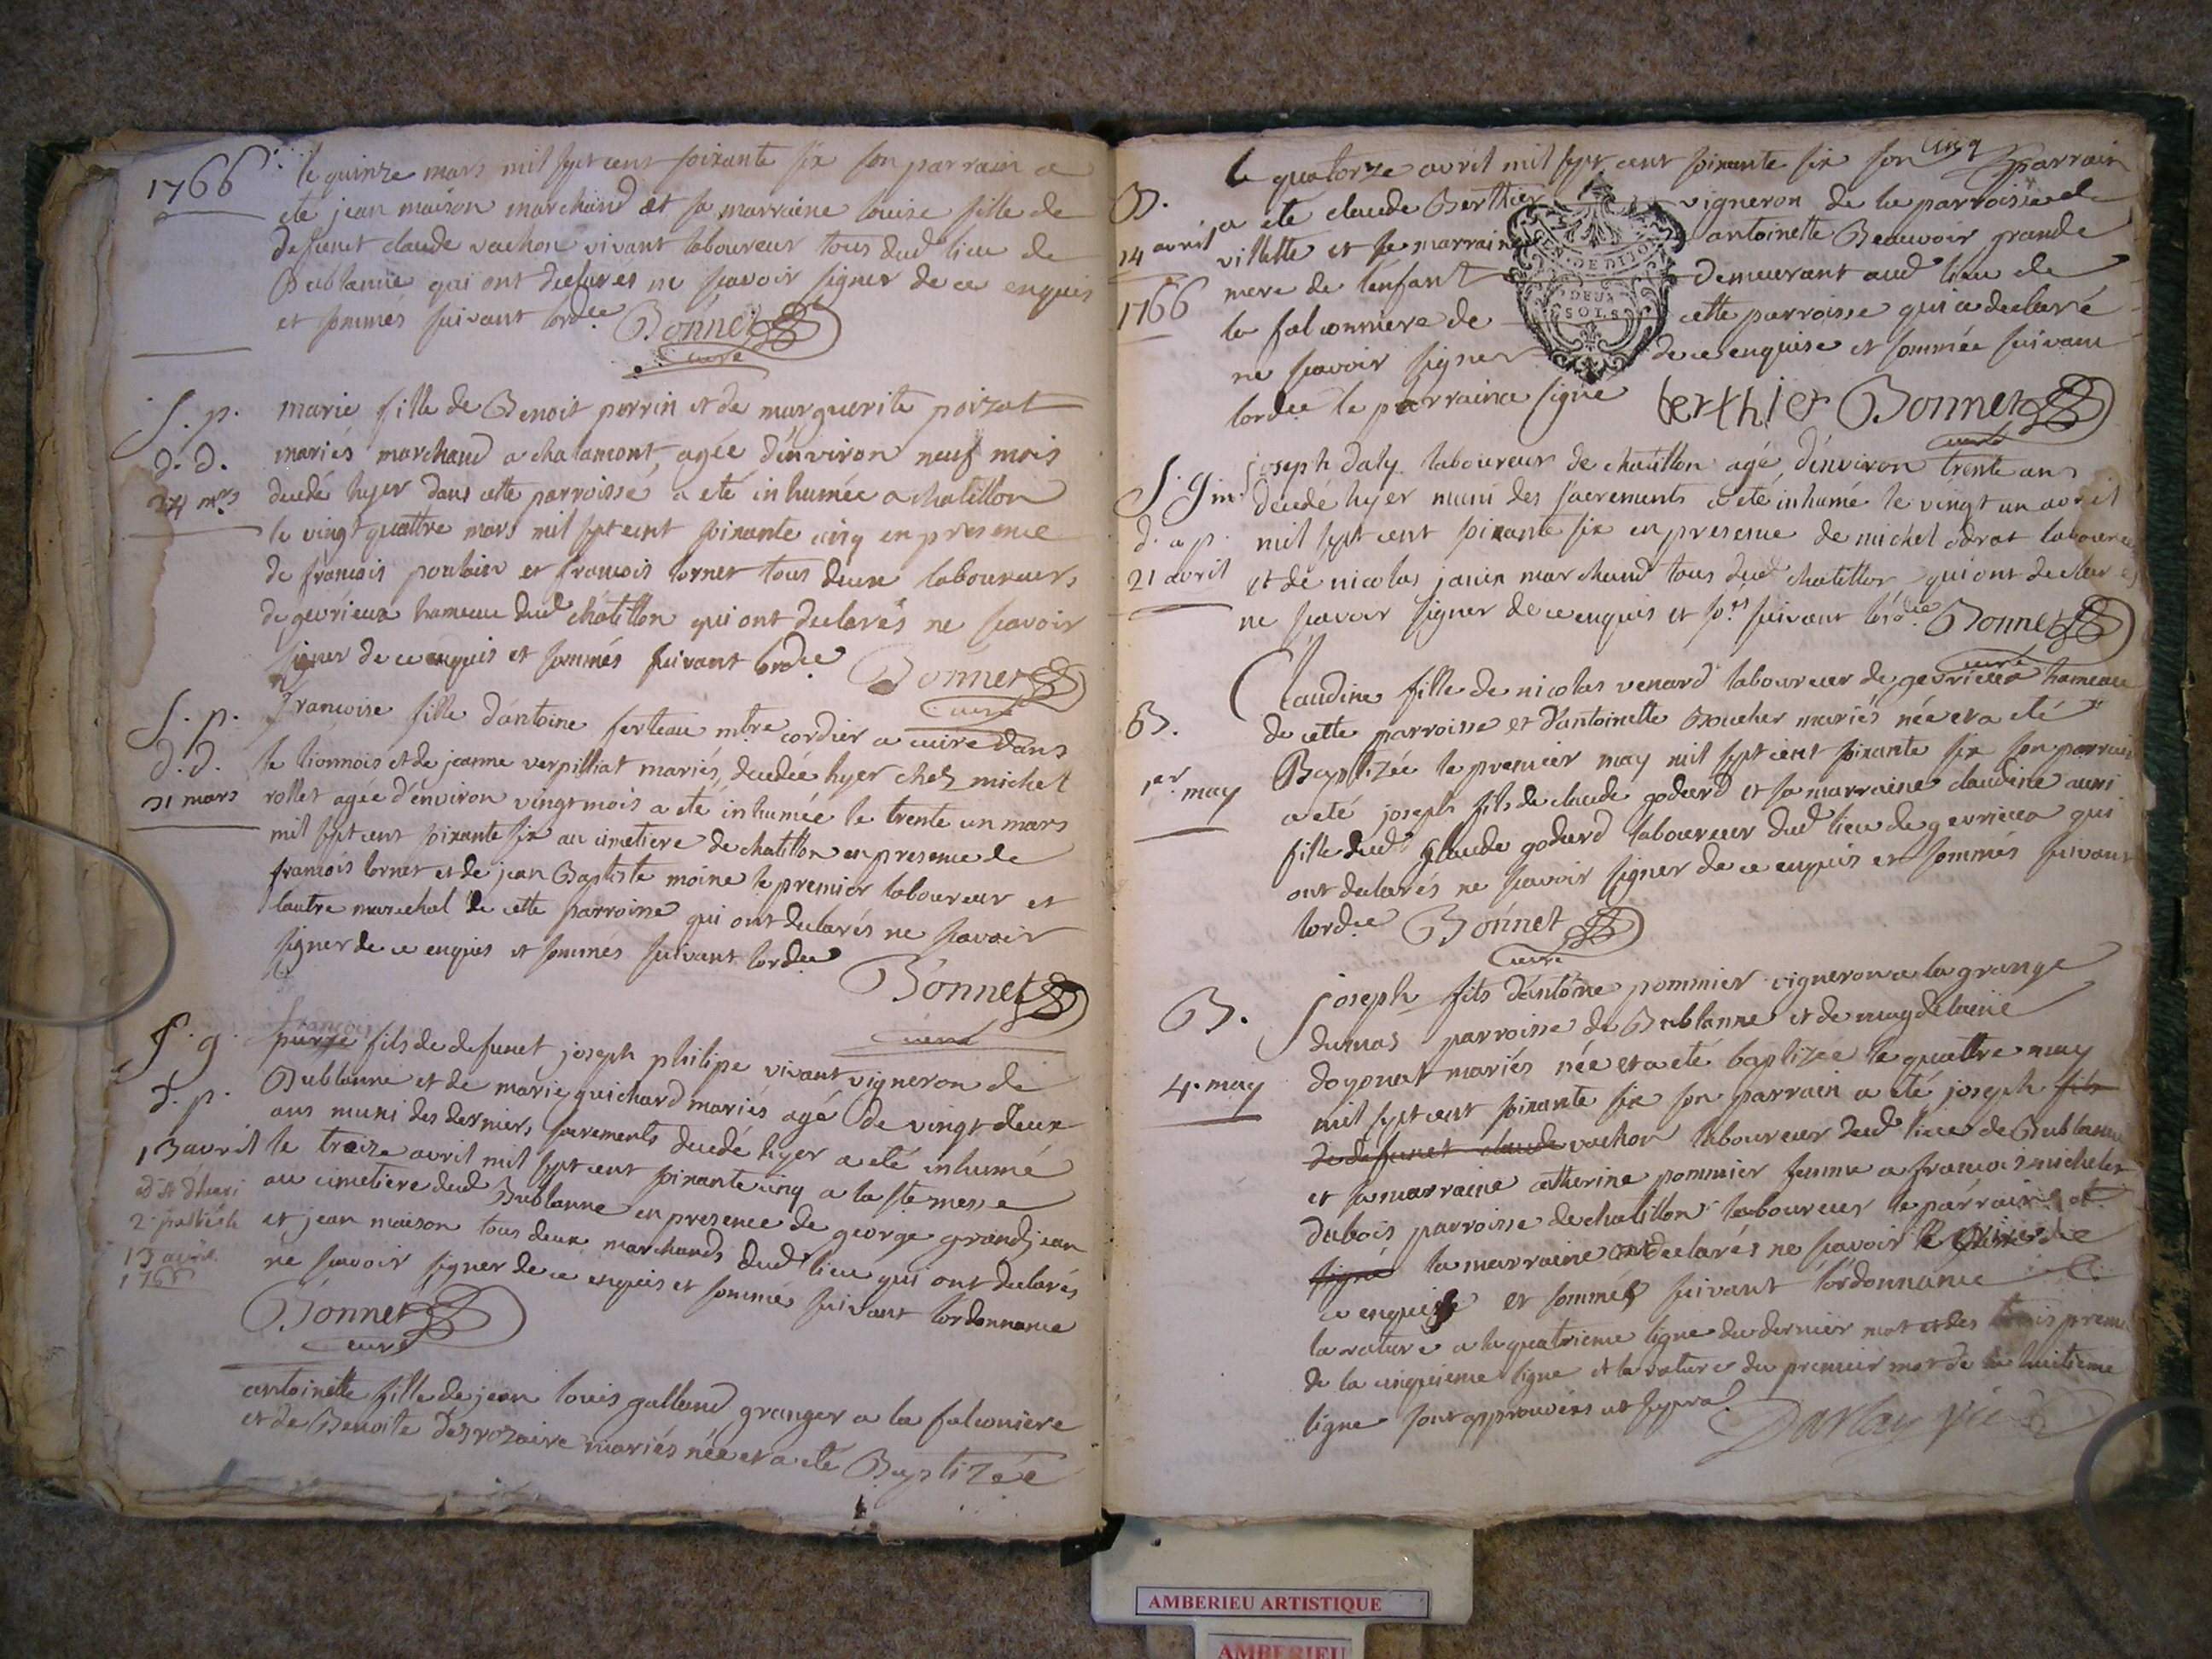 1766
le quinze mars mil sept cent soixante six son parrain a
eté jean maison marchand et sa marraine louise fille de
defunct claude vachon vivant laboureur tous dud lieu de
Bublanne qui ont declarés ne scavoir signer de ce enquis
et sommés suivant lordce Bonnet
curé
S. p.
d. d.
24 mrs
marie fille de Benoit perrin et de marguerite poizat
mariés marchand a chalamont, agée d'environ neuf mois
decedé hyer dans cette parroisse a eté inhumée a chatillon
le vingt quattre mars mil sept cent soixante cinq en presence
de francois poulain et francois tornet tous deux laboureurs
de gevrieux hameau dud chatillon qui ont declarés ne scavoir
signer de ce enquis et sommés suivant lordce Bonnet
curé
S. p.
d. d.
31 mars
francoise fille d'antoine ferteau mtre cordier a cuire dans
le lionnois et de jeanne verpilliat mariés, decedée hyer chez michel
rollet agée d'environ vingt mois a eté inhumée le trente un mars
mil sept cent soixante six au cimetiere de chatillon en presence de
francois tornet et de jean Baptiste moine le premier laboureur et
lautre marechal de cette parroisse qui ont declarés ne scavoir
signer de ce enquis et sommés suivant lordce
Bonnet
curé
S. g.
d. p.
13 avril
2.
13 avril
1766
francois
fils de defunct joseph philipe vivant vigneron de
Bublanne et de marie guichard mariés agé de vingt deux
ans muni des derniers sacrements decedé hyer a eté inhumé
le treize avril mil sept cent soixante cinq a la ste messe
au cimetiere dud Bublanne en presence de george grandjean
et jean maison tous deux marchands dud lieu qui ont declarés
ne scavoir signer de ce enquis et sommés suivant lordonnance
Bonnet
curé
antoinette fille de jean louis galland granger a la falconiere
et de Benoite Desrozaire mariés née et a eté Baptizée
cinq
B.
14 avril
1766
le quatorze avril mil sept cent soixante six son parrain
a eté claude Berthier vigneron de la parroisse de
villette et sa marraine antoinette Beauvoir grande
mere de l'enfant demeurant aud lieu de
la falconniere de cette parroisse qui a declaré
ne scavoir signer de ce enquise et sommée suivant
lordce le parrain a signé berthier Bonnet
curé
DEUX
SOLS
S. g m.
d. a p.
21 avril
joseph daly laboureur de chatillon agé d'environ trente ans
decedé hyer muni des sacrements a eté inhumé le vingt un avril
mil sept cent soixante six en presence de michel odrat laboureur
et de nicolas janin marchand tous dud chatillon qui ont declarés
ne scavoir signer de ce enquis et s.es suivant lordce Bonnet
curé
B.
1er may
Claudine fille de nicolas venard laboureur de gevrieux hameau
de cette parroisse et d'antoinette Boucher mariés née et a eté
Baptizée le premier may mil sept cent soixante six son parrain
a eté joseph fils de claude godard et sa marraine claudine aussi
fille dud claude godard laboureur dud lieu de gevrieux qui
ont declarés ne scavoir signer de ce enquis et sommés suivant
lordce Bonnet
curé
B.
4. may
joseph fils d'antoine pommier vigneron a la grange
dumas parroisse de Bublanne et de magdelaine
doyonat mariés née et a eté baptizée le quattre may
mil sept cent soixante six son parrain a eté joseph fils
de defunct claude vachon laboureur dud lieu de Bublanne
et sa marraine catherine pommier femme a francois michelet
dubois parroisse de chatillon laboureur le parrain et
signé la marraine ont declarés ne scavoir signer de
ce enquis et sommés suivant l'ordonnance
la rature a la quatrieme ligne du dernier mot et des trois premi
de la cinquieme ligne et la rature du premier mot de la huitieme
ligne sont approuvées ut supra
AMBERIEU ARTISTIQUE
AMBERIEU